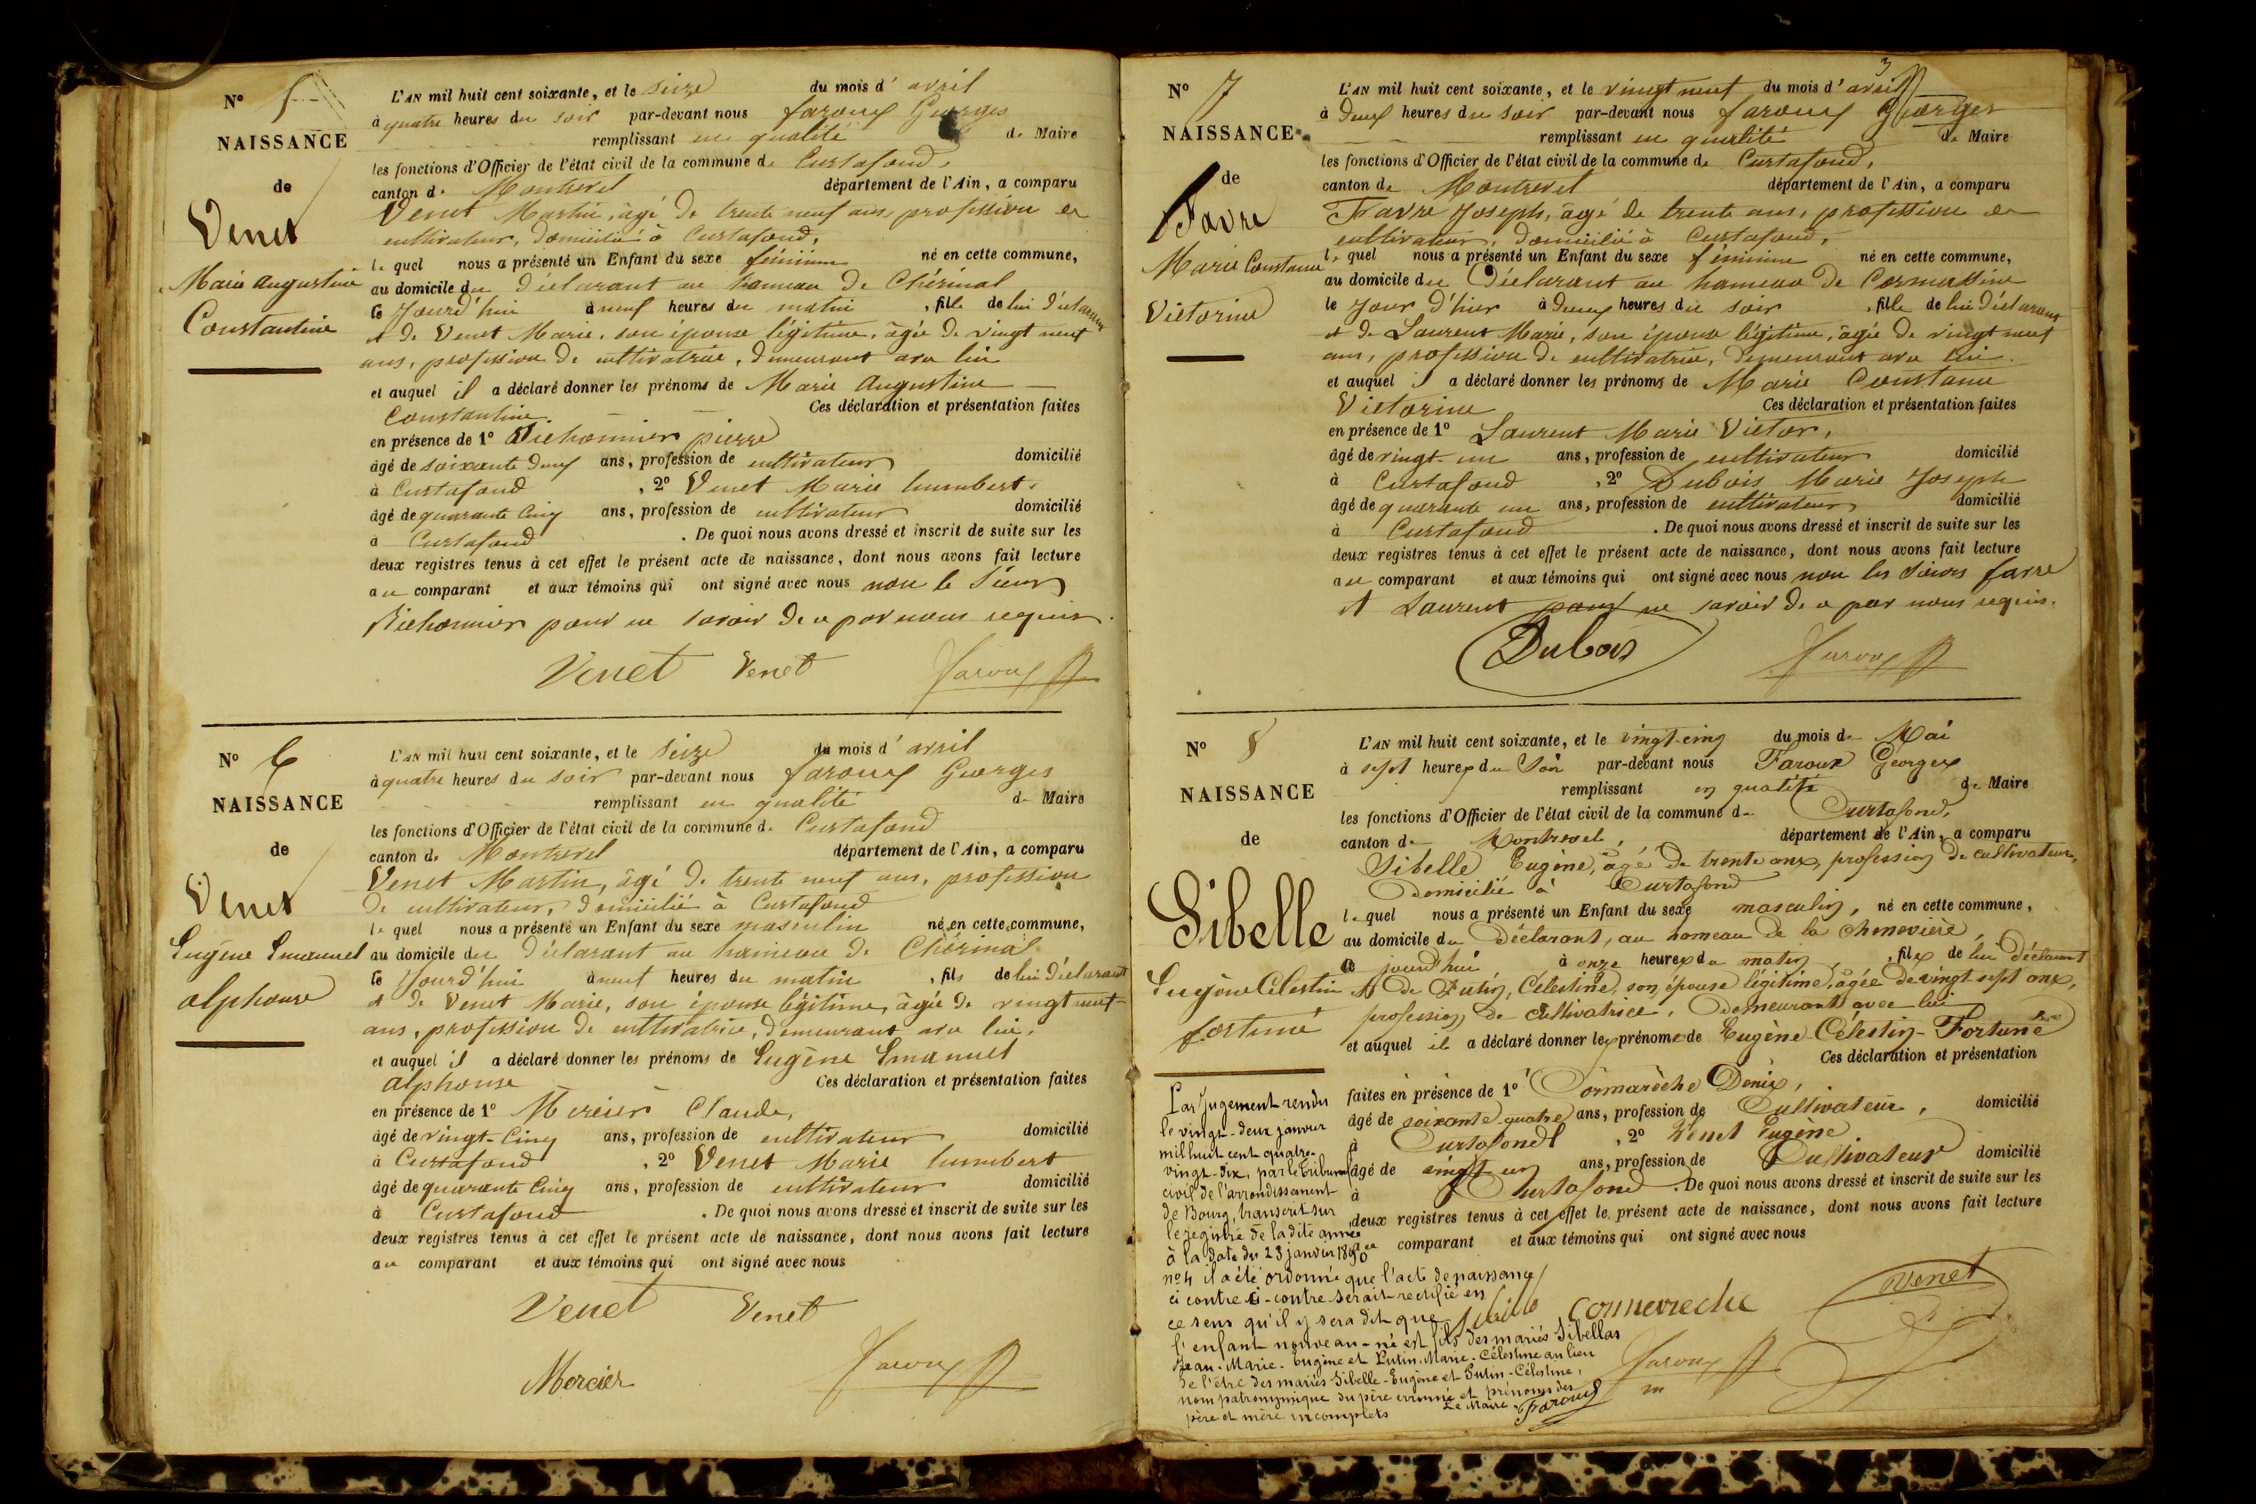 N° 5
NAISSANCE
de
Venet
Marie Augustine
Constantine
L'AN mil huit cent soixante, et le seize du mois d' avril
à quatre heures du soir par-devant nous faroux Georges
remplissant en qualité de Maire
les fonctions d'Officier de l'état civil de la commune de Curtafond,
canton de Montrevel département de l'Ain, a comparu
Venet Martin, âgé de trente neuf ans, profession de
cultivateur, domicilié à Curtafond,
le quel nous a présenté un Enfant du sexe féminin né en cette commune,
au domicile du déclarant au hameau de Chérinal
ce Jourd'hui à neuf heures du matin, fille de lui déclarant
et de Venet Marie, son épouse légitime, âgée de vingt neuf
ans, profession de cultivatrice, demeurant avec lui
et auquel il a déclaré donner les prénoms de Marie Augustine
Constantine Ces déclaration et présentation faites
en présence de 1° Richonnier pierre
âgé de soixante deux ans, profession de cultivateur domicilié
à Curtafond, 2° Venet Marie humbert,
âgé de quarante cinq ans, profession de cultivateur domicilié
à Curtafond. De quoi nous avons dressé et inscrit de suite sur les
deux registres tenus à cet effet le présent acte de naissance, dont nous avons fait lecture
au comparant et aux témoins qui ont signé avec nous non le Sieur
Richonnier pour ne savoir de ce par nous requis.
Venet Venet Faroux
N° 6
NAISSANCE
de
Venet
Eugène Emanuel
alphonse
L'AN mil huit cent soixante, et le seize du mois d' avril
à quatre heures du soir par-devant nous faroux Georges
remplissant en qualité de Maire
les fonctions d'Officier de l'état civil de la commune de Curtafond
canton de Montrevel département de l'Ain, a comparu
Venet Martin, âgé de trente neuf ans, profession
de cultivateur, domicilié à Curtafond
le quel nous a présenté un Enfant du sexe masculin né en cette commune,
au domicile du déclarant au hameau de Chérinal
ce Jourd'hui à neuf heures du matin, fils de lui déclarant
et de Venet Marie, son épouse légitime, âgée de vingt neuf
ans, profession de cultivatrice, demeurant avec lui,
et auquel il a déclaré donner les prénoms de Eugène Emanuel
alphonse Ces déclaration et présentation faites
en présence de 1° Mercier Claude,
âgé de vingt-cinq ans, profession de cultivateur domicilié
à Curtafond, 2° Venet Marie humbert
âgé de quarante cinq ans, profession de cultivateur domicilié
à Curtafond. De quoi nous avons dressé et inscrit de suite sur les
deux registres tenus à cet effet le présent acte de naissance, dont nous avons fait lecture
au comparant et aux témoins qui ont signé avec nous
Venet Venet
Mercier Faroux
3
N° 7
NAISSANCE
de
Favre
Marie Constance
Victorine
L'AN mil huit cent soixante, et le vingt neuf du mois d' avril
à deux heures du soir par-devant nous faroux Georges
remplissant en qualité de Maire
les fonctions d'Officier de l'état civil de la commune de Curtafond,
canton de Montrevel département de l'Ain, a comparu
Favre Joseph, âgé de trente ans, profession de
cultivateur, domicilié à Curtafond,
le quel nous a présenté un Enfant du sexe féminin né en cette commune,
au domicile du Déclarant au hameau de
le Jour d'hier à deux heures du soir, fille de lui déclarant
et de Laurent Marie, son épouse légitime, âgée de vingt neuf
ans, profession de cultivatrice, demeurant avec lui.
et auquel il a déclaré donner les prénoms de Marie Constance
Victorine Ces déclaration et présentation faites
en présence de 1° Laurent Marie Victor,
âgé de vingt-un ans, profession de cultivateur domicilié
à Curtafond, 2° Dubois Marie Joseph
âgé de quarante un ans, profession de cultivateur domicilié
à Curtafond. De quoi nous avons dressé et inscrit de suite sur les
deux registres tenus à cet effet le présent acte de naissance, dont nous avons fait lecture
au comparant et aux témoins qui ont signé avec nous non les sieurs favre
et Laurent pour ne savoir de ce par nous requis.
Dubois Faroux
N° 8
NAISSANCE
de
Sibelle
Eugène Célestin
fortuné
L'AN mil huit cent soixante, et le vingt-cinq du mois de Mai
à sept heures du Soir par-devant nous Faroux Georges
remplissant en qualité de Maire
les fonctions d'Officier de l'état civil de la commune de Curtafond,
canton de Montrevel, département de l'Ain, a comparu
Sibelle Eugène, âgé de trente ans, profession de cultivateur,
Domicilié à Curtafond
le quel nous a présenté un Enfant du sexe masculin, né en cette commune,
au domicile du Déclarant, au hameau de la Chenevière,
ce jourd'hui à onze heures du matin, fils de lui déclarant
et de Putin, Célestine, son épouse légitime, âgée de vingt sept ans,
profession de cultivatrice, demeurant avec lui
et auquel il a déclaré donner les prénoms de Eugène Célestin-Fortuné
Ces déclaration et présentation
faites en présence de 1° Cormarèche Denis,
âgé de soixante quatre ans, profession de Cultivateur, domicilié
à Curtafond, 2° Venet Eugène
âgé de vingt un ans, profession de Cultivateur domicilié
à Curtafond. De quoi nous avons dressé et inscrit de suite sur les
deux registres tenus à cet effet le présent acte de naissance, dont nous avons fait lecture
au comparant et aux témoins qui ont signé avec nous
Venet
Cormareche
Faroux
m
Par Jugement rendu
le vingt-deux janvier
mil huit cent quatre-
vingt-dix, par le tribunal
civil de l'arrondissement
de Bourg, transcrit sur
le registre de la dite année
à la date du 23 janvier 1890
n° 4 il a été ordonné que l'acte de naissance
ci contre ci-contre serait rectifié en
ce sens qu'il y sera dit que
l'enfant nouveau-né est fils des mariés Sibellas
Jean-Marie-Eugène et Putin-Marie-Célestine au lieu
de l'être des mariés Sibelle-Eugène et Putin-Célestine,
nom patronymique du père erronné et prénoms des
père et mère incomplets Le Maire, Faroux